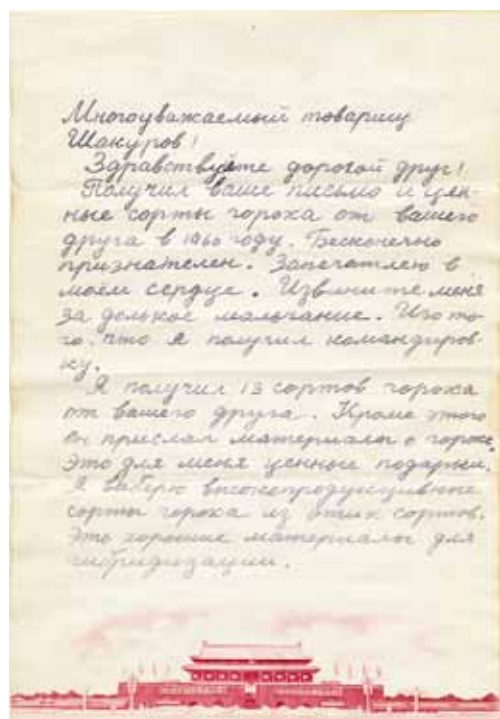 Многоуважаемый товарищ
Шакуров!
Здравствуйте дорогой друг!
Получил ваше письмо и цен-
ные сорты гороха от вашего
друга в 1960 году. Бесконечно
признателен. Запечатлею в
моем сердце. Извините меня
за долькое мальчание. Из то-
го что я получил командиров-
ку.
Я получил 13 сортов гороха
от вашего друга. Кроме этого
он прислал материалы о горохе.
Это для меня ценные подарки.
Я выберю высокопродукцивные
сорты гороха из этих сортов.
Это хорошие материалы для
гибридизации.